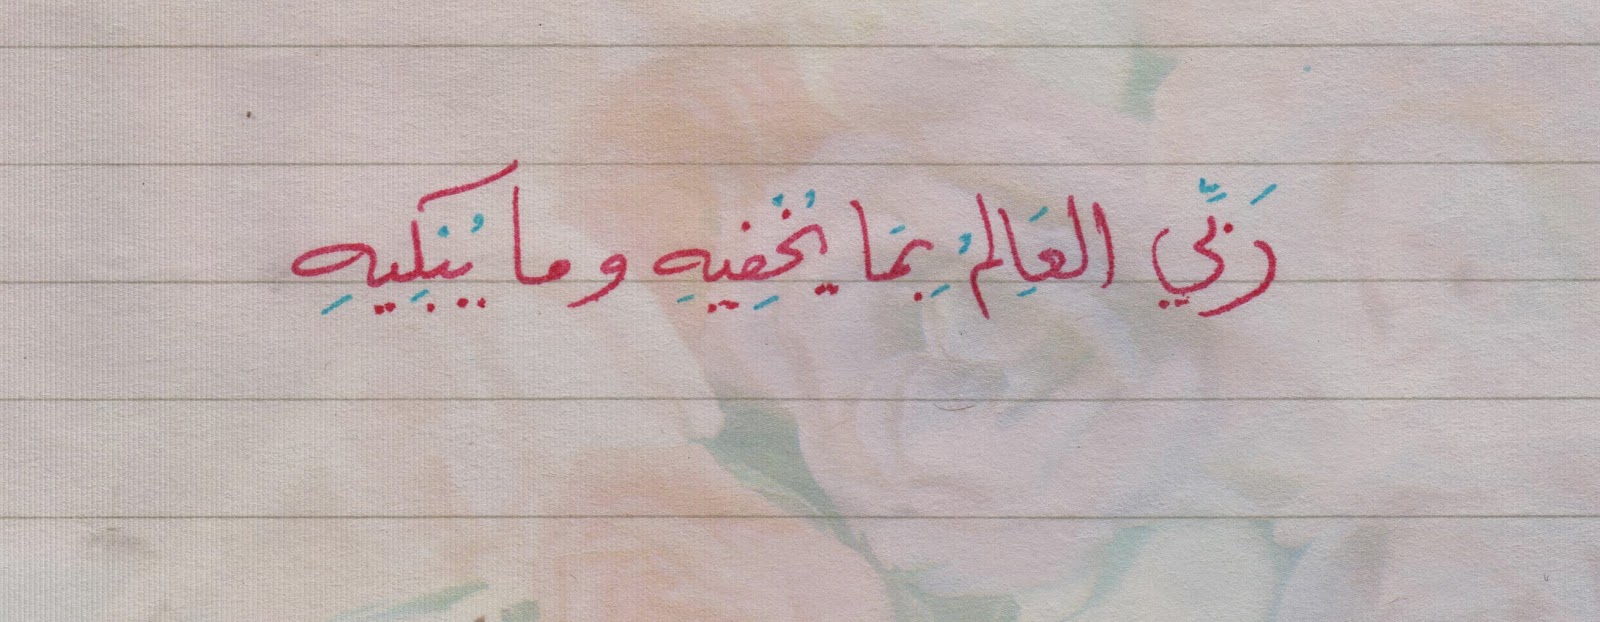 رَبِّي العَالِمُ بِمَا يُخْفِيهِ وما يُبْكِيهِ